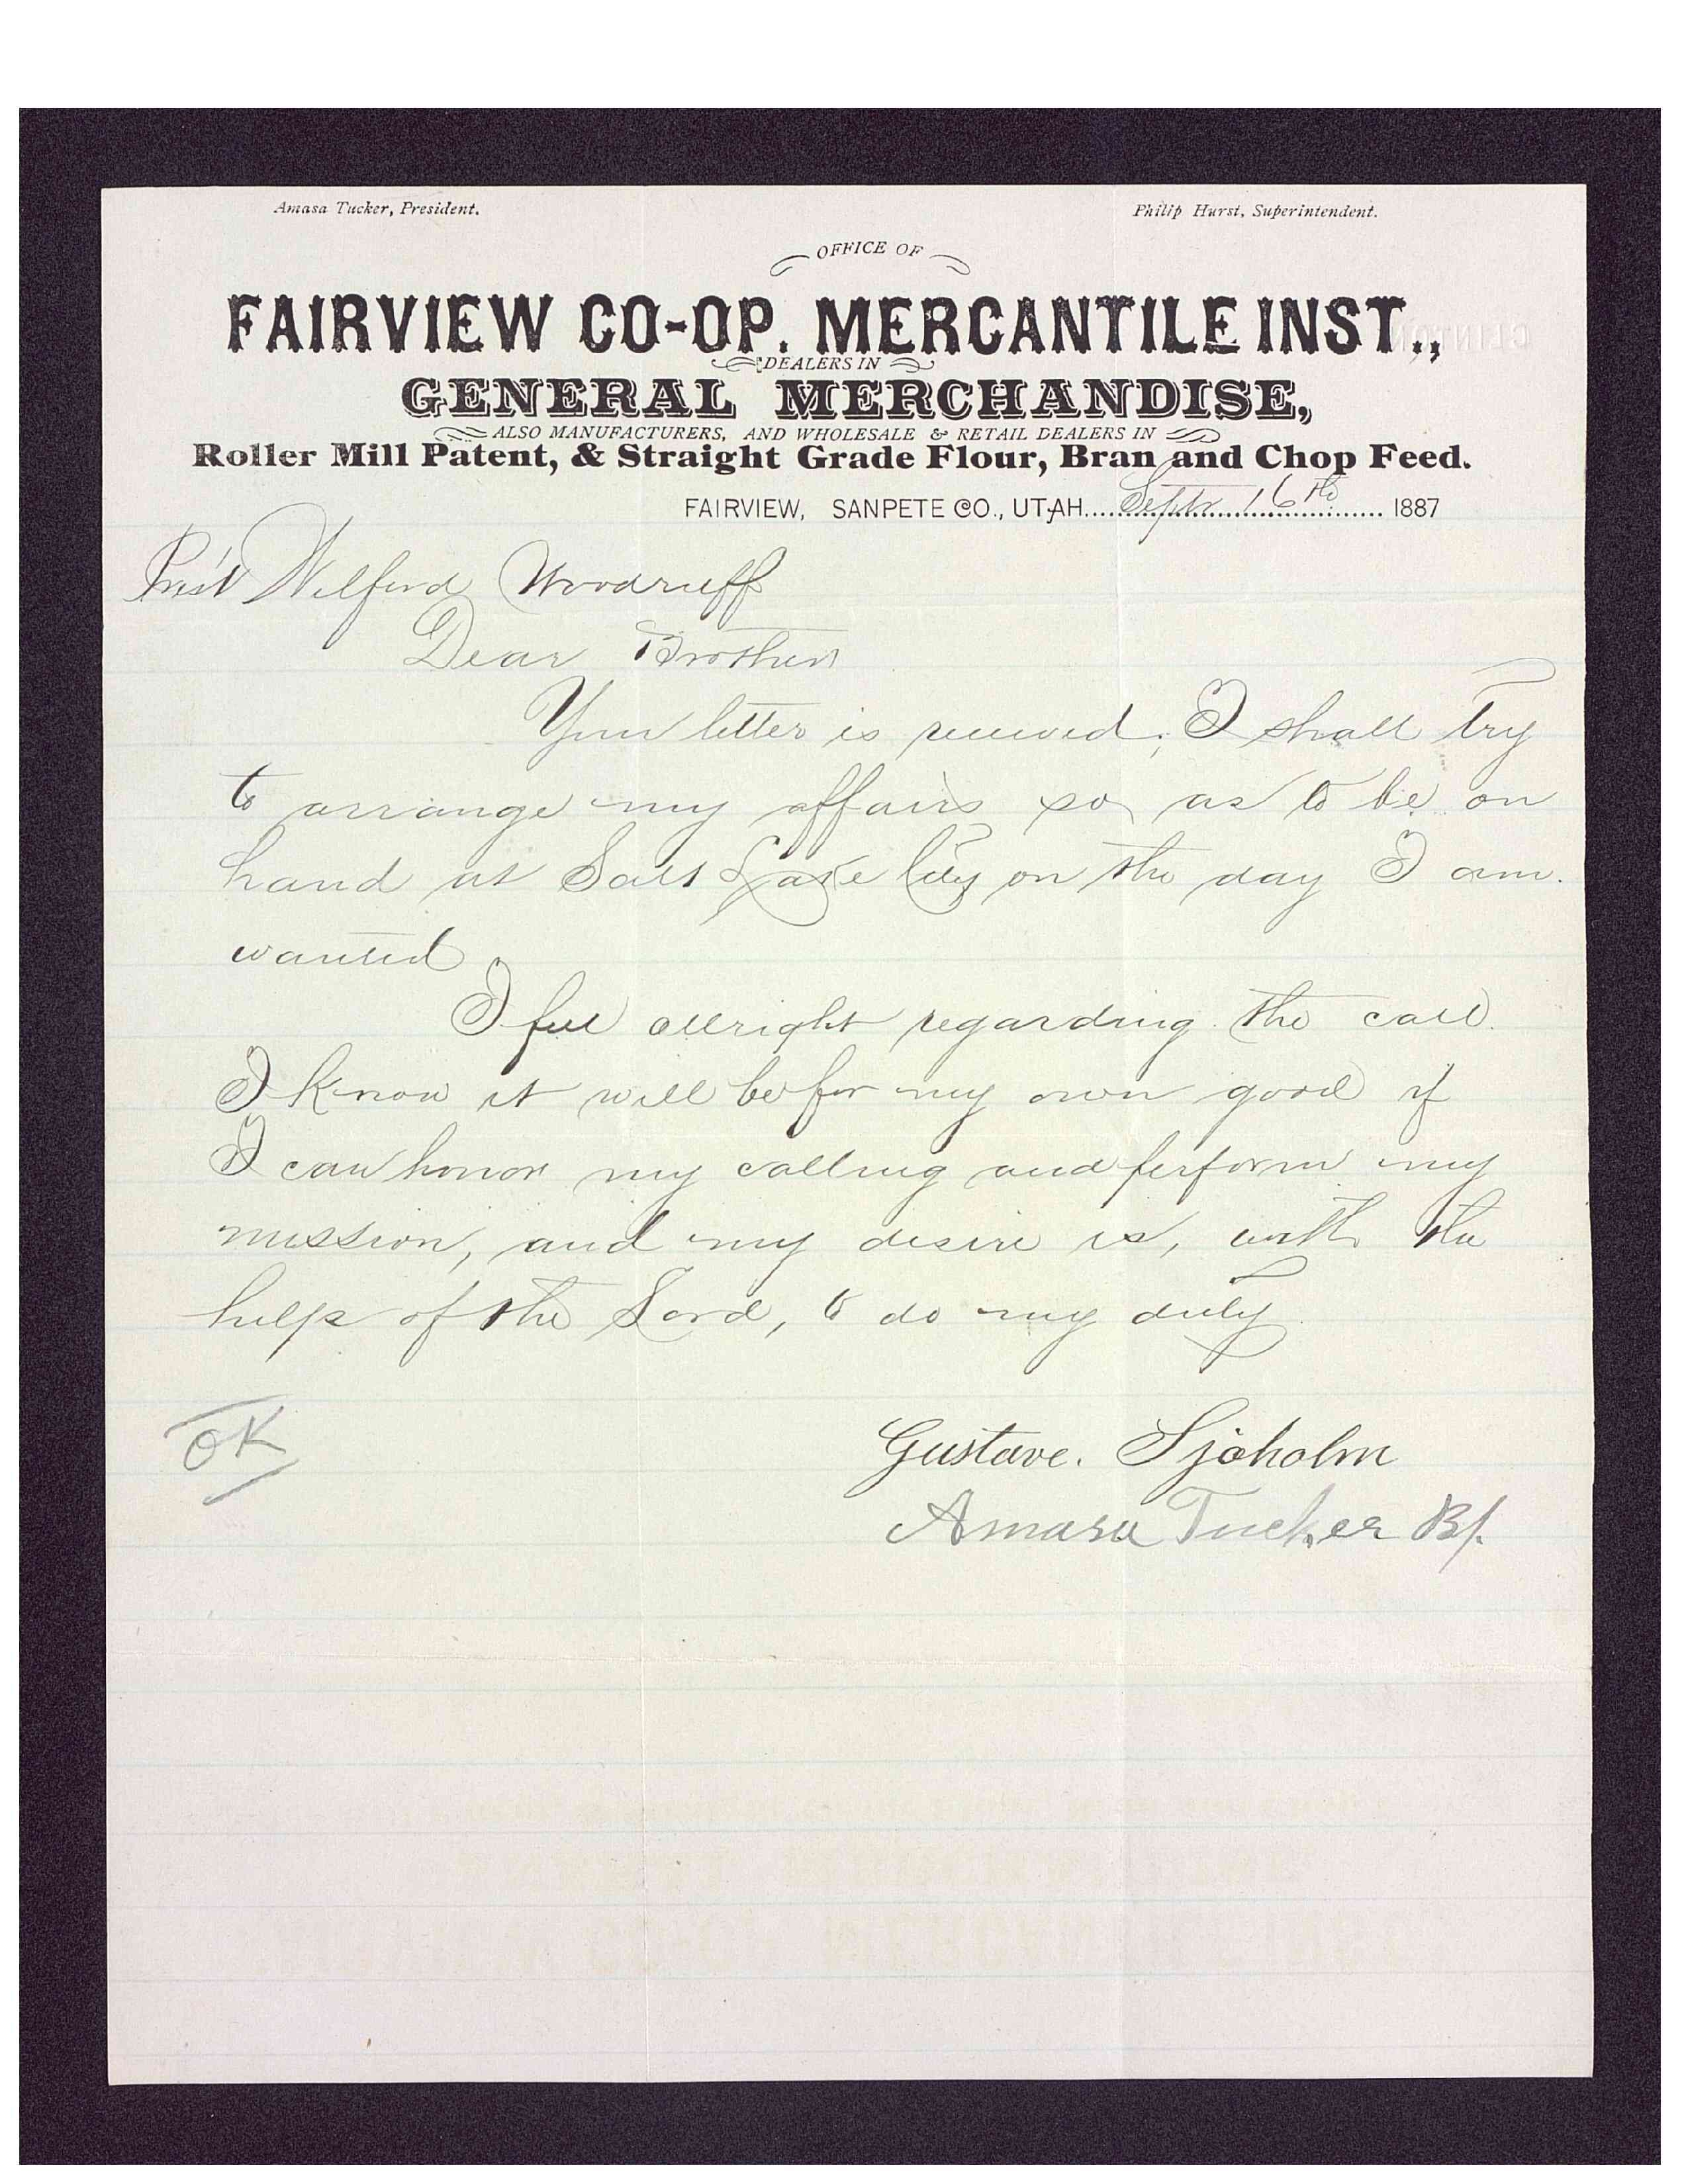 Amasa Tucker, President.
Philip Hurst, Superintendent.
OFFICE OF
FAIRVIEW CO-OP. MERCANTILE INST.,
DEALERS IN
GENERAL MERCHANDISE,
ALSO MANUFACTURERS, AND WHOLESALE & RETAIL DEALERS IN
Roller Mill Patent, & Straight Grade Flour, Bran and Chop Feed.
FAIRVIEW, SANPETE CO., UTAH. Septr 16th 1887
Pres't Wilford Woodruff
Dear Brother
Your letter is received; I shall try
to arrange my affairs so as to be on
hand at Salt Lake City on the day I am
wanted.
I feel allright regarding the call.
I know it will be for my own good if
I can honor my calling and perform my
mission, and my desire is, with the
help of the Lord, to do my duty.
OK
Gustave. Sjöholm
Amasa Tucker Bp.